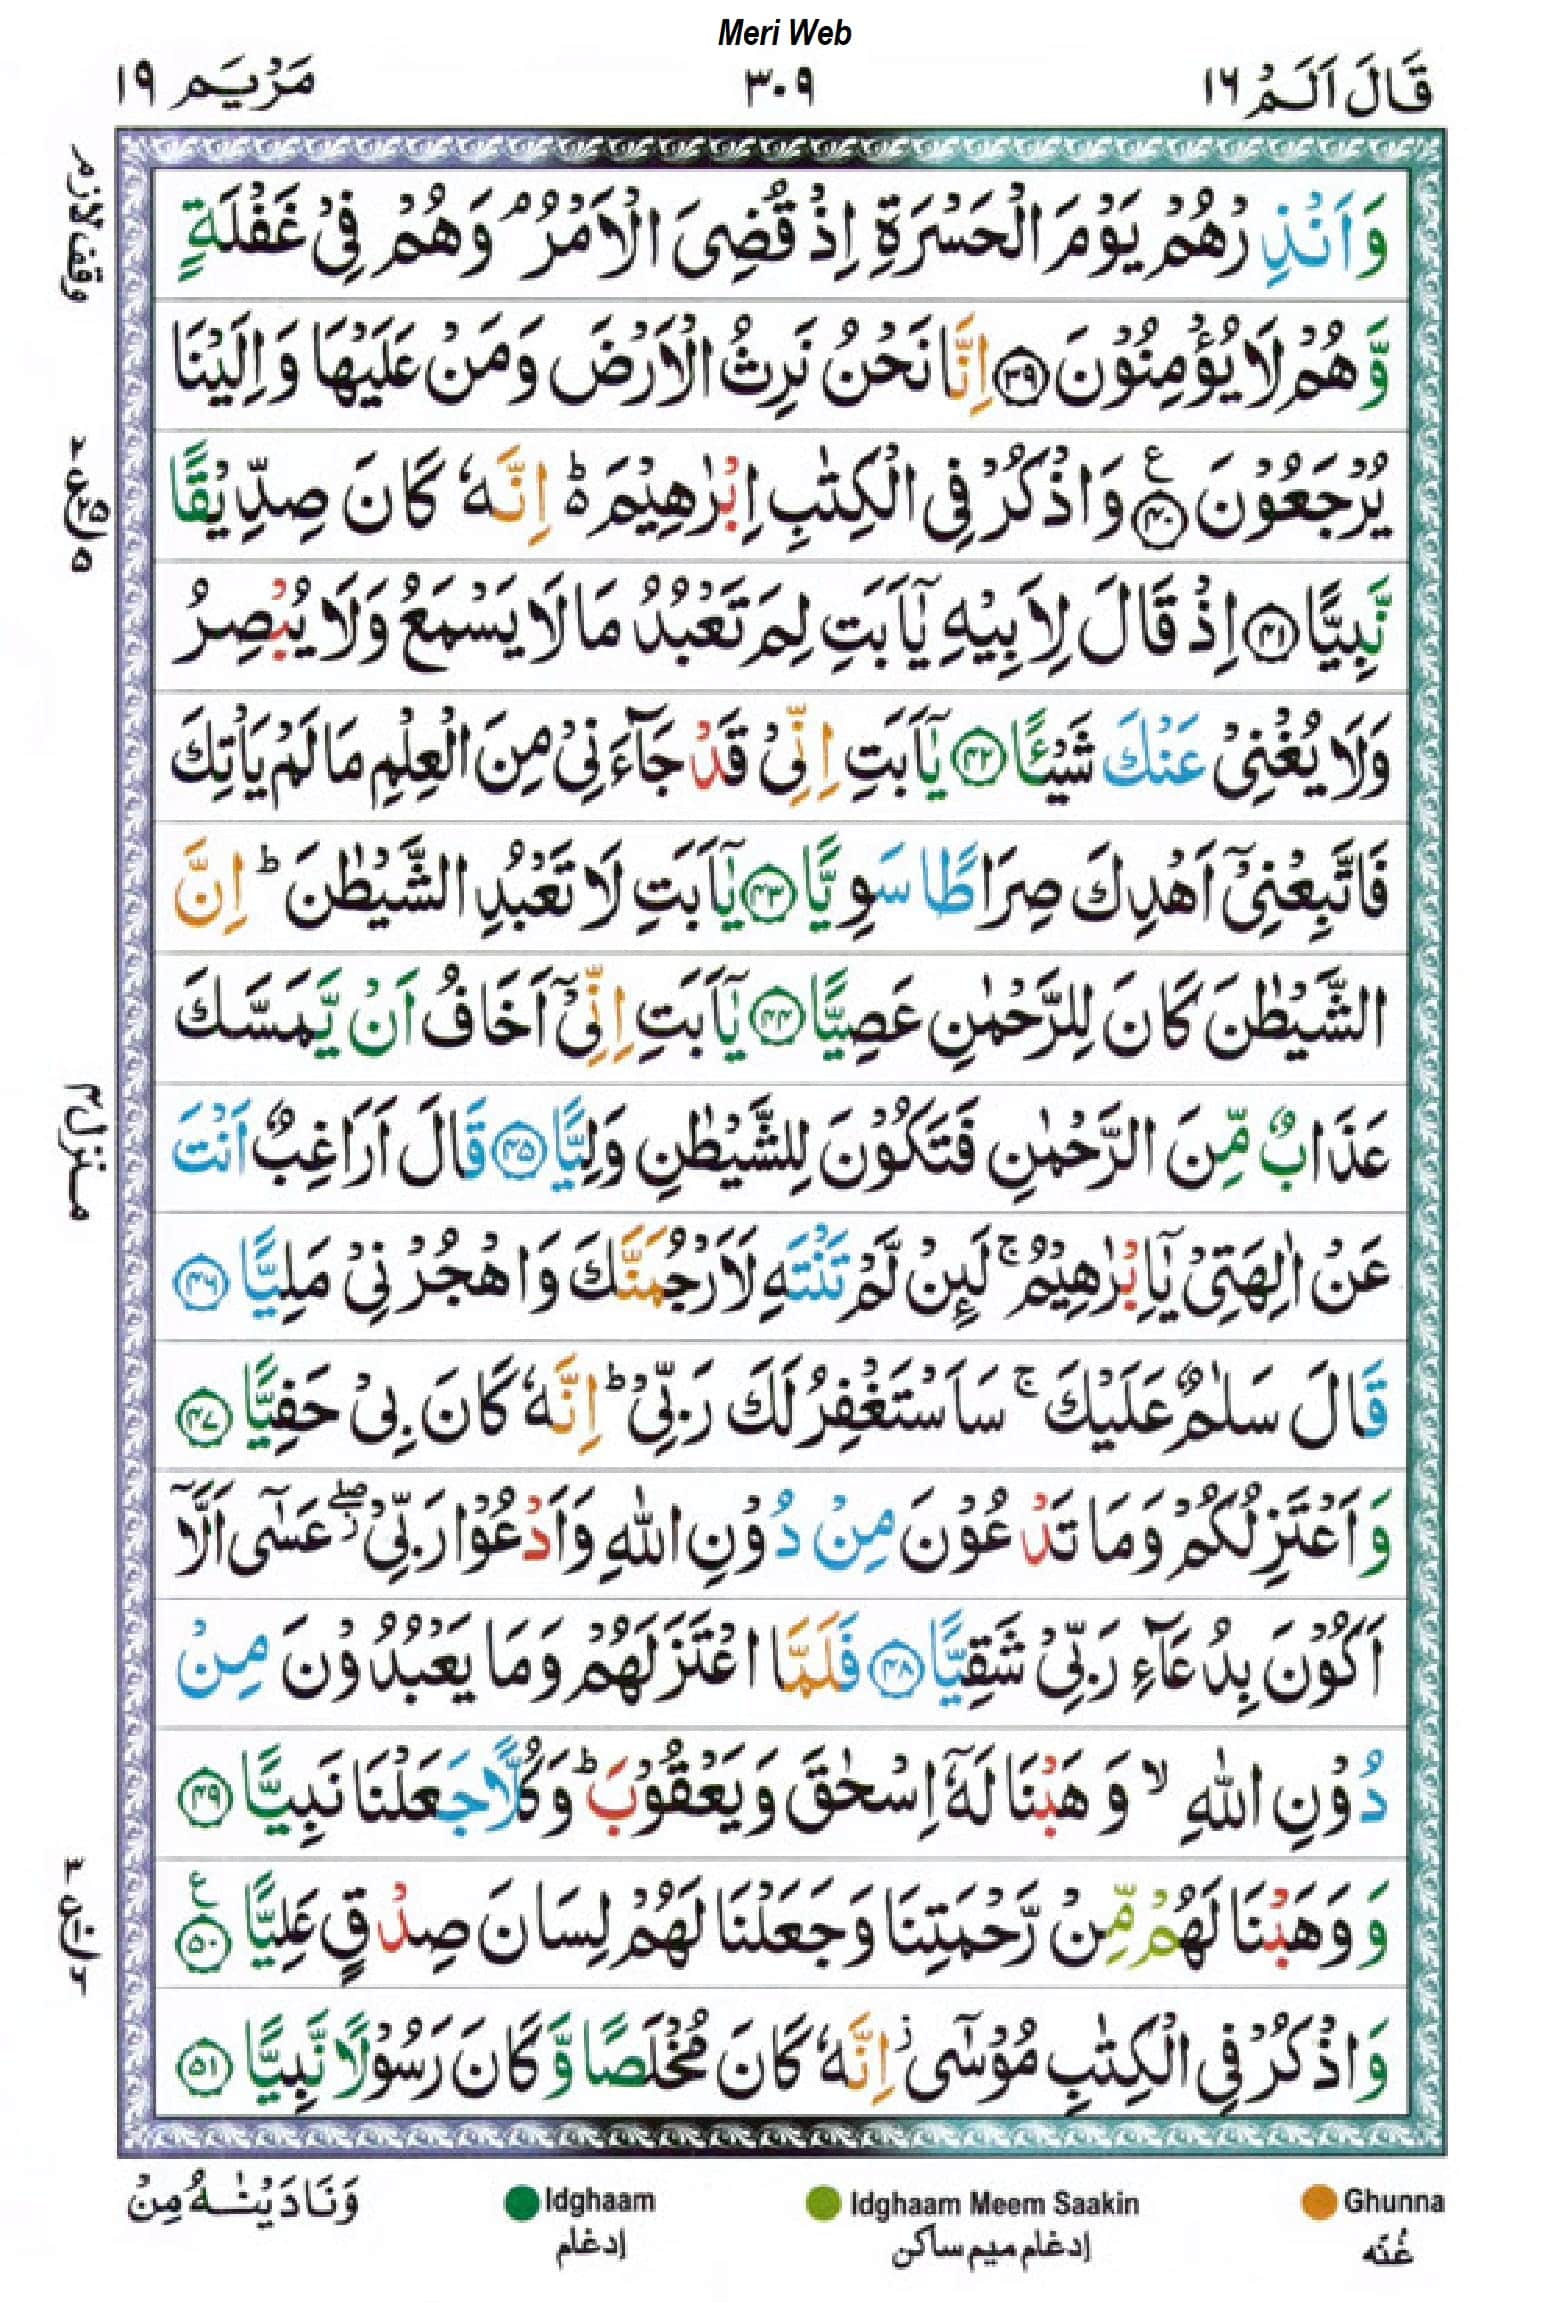 Meri Web
قَالَ اَلَمْ ١٦
٣٠٩
مَرْيَم ١٩
وقف لازم
وَاَنْذِرْهُمْ يَوْمَ الْحَسْرَةِ اِذْ قُضِىَ الْاَمْرُ ۘ وَهُمْ فِىْ غَفْلَةٍ
وَّهُمْ لَا يُؤْمِنُوْنَ ۝٣٩ اِنَّا نَحْنُ نَرِثُ الْاَرْضَ وَمَنْ عَلَيْهَا وَاِلَيْنَا
يُرْجَعُوْنَ ۝٤٠ ع وَاذْكُرْ فِى الْكِتٰبِ اِبْرٰهِيْمَ ؕ اِنَّهٗ كَانَ صِدِّيْقًا
نَّبِيًّا ۝٤١ اِذْ قَالَ لِاَبِيْهِ يٰۤاَبَتِ لِمَ تَعْبُدُ مَا لَا يَسْمَعُ وَلَا يُبْصِرُ
وَلَا يُغْنِىْ عَنْكَ شَيْـًٔا ۝٤٢ يٰۤاَبَتِ اِنِّىْ قَدْ جَآءَنِىْ مِنَ الْعِلْمِ مَا لَمْ يَاْتِكَ
فَاتَّبِعْنِىْۤ اَهْدِكَ صِرَاطًا سَوِيًّا ۝٤٣ يٰۤاَبَتِ لَا تَعْبُدِ الشَّيْطٰنَ ؕ اِنَّ
الشَّيْطٰنَ كَانَ لِلرَّحْمٰنِ عَصِيًّا ۝٤٤ يٰۤاَبَتِ اِنِّىْۤ اَخَافُ اَنْ يَّمَسَّكَ
منزل ٤
عَذَابٌ مِّنَ الرَّحْمٰنِ فَتَكُوْنَ لِلشَّيْطٰنِ وَلِيًّا ۝٤٥ قَالَ اَرَاغِبٌ اَنْتَ
عَنْ اٰلِهَتِىْ يٰۤاِبْرٰهِيْمُ ۚ لَئِنْ لَّمْ تَنْتَهِ لَاَرْجُمَنَّكَ وَاهْجُرْنِىْ مَلِيًّا ۝٤٦
قَالَ سَلٰمٌ عَلَيْكَ ۚ سَاَسْتَغْفِرُ لَكَ رَبِّىْ ؕ اِنَّهٗ كَانَ بِىْ حَفِيًّا ۝٤٧
وَاَعْتَزِلُكُمْ وَمَا تَدْعُوْنَ مِنْ دُوْنِ اللّٰهِ وَاَدْعُوْا رَبِّىْ ۖ عَسٰۤى اَلَّاۤ
اَكُوْنَ بِدُعَآءِ رَبِّىْ شَقِيًّا ۝٤٨ فَلَمَّا اعْتَزَلَهُمْ وَمَا يَعْبُدُوْنَ مِنْ
دُوْنِ اللّٰهِ ۙ وَهَبْنَا لَهٗۤ اِسْحٰقَ وَيَعْقُوْبَ ؕ وَكُلًّا جَعَلْنَا نَبِيًّا ۝٤٩
وَوَهَبْنَا لَهُمْ مِّنْ رَّحْمَتِنَا وَجَعَلْنَا لَهُمْ لِسَانَ صِدْقٍ عَلِيًّا ۝٥٠ ع
وَاذْكُرْ فِى الْكِتٰبِ مُوْسٰٓى ز اِنَّهٗ كَانَ مُخْلَصًا وَّكَانَ رَسُوْلًا نَّبِيًّا ۝٥١
وَنَادَيْنٰهُ مِنْ
Idghaam
إدغام
Idghaam Meem Saakin
إدغام ميم ساكن
Ghunna
غُنّه